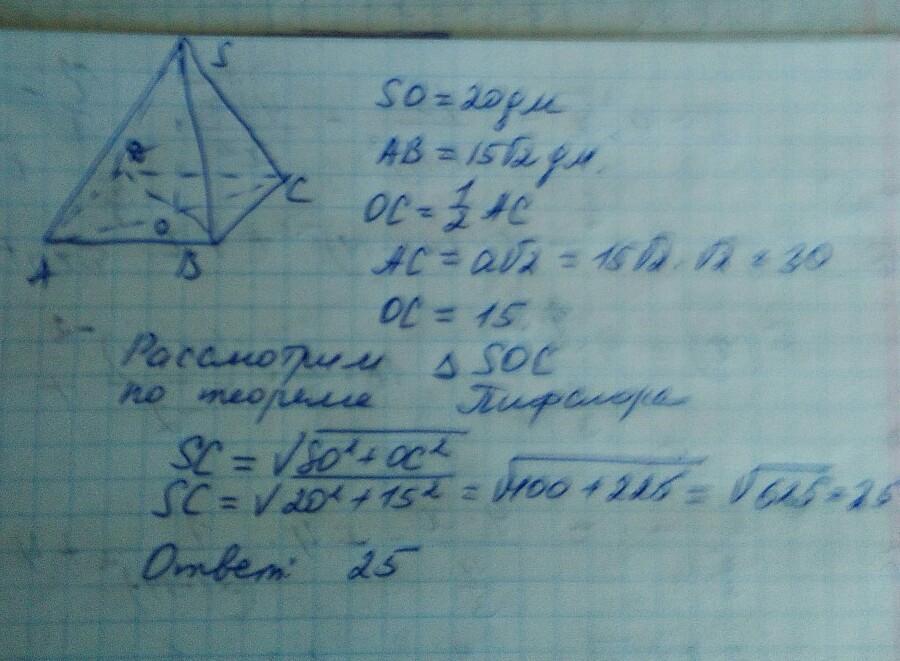 S
C
O
A
B
SO = 20 дм
AB = 15√2 дм.
OC = 1/2 AC
AC = a√2 = 15√2 · √2 = 30
OC = 15
Рассмотрим △ SOC
по теореме Пифагора
SC = √SO² + OC²
SC = √20² + 15² = √400 + 225 = √625 = 25
Ответ: 25